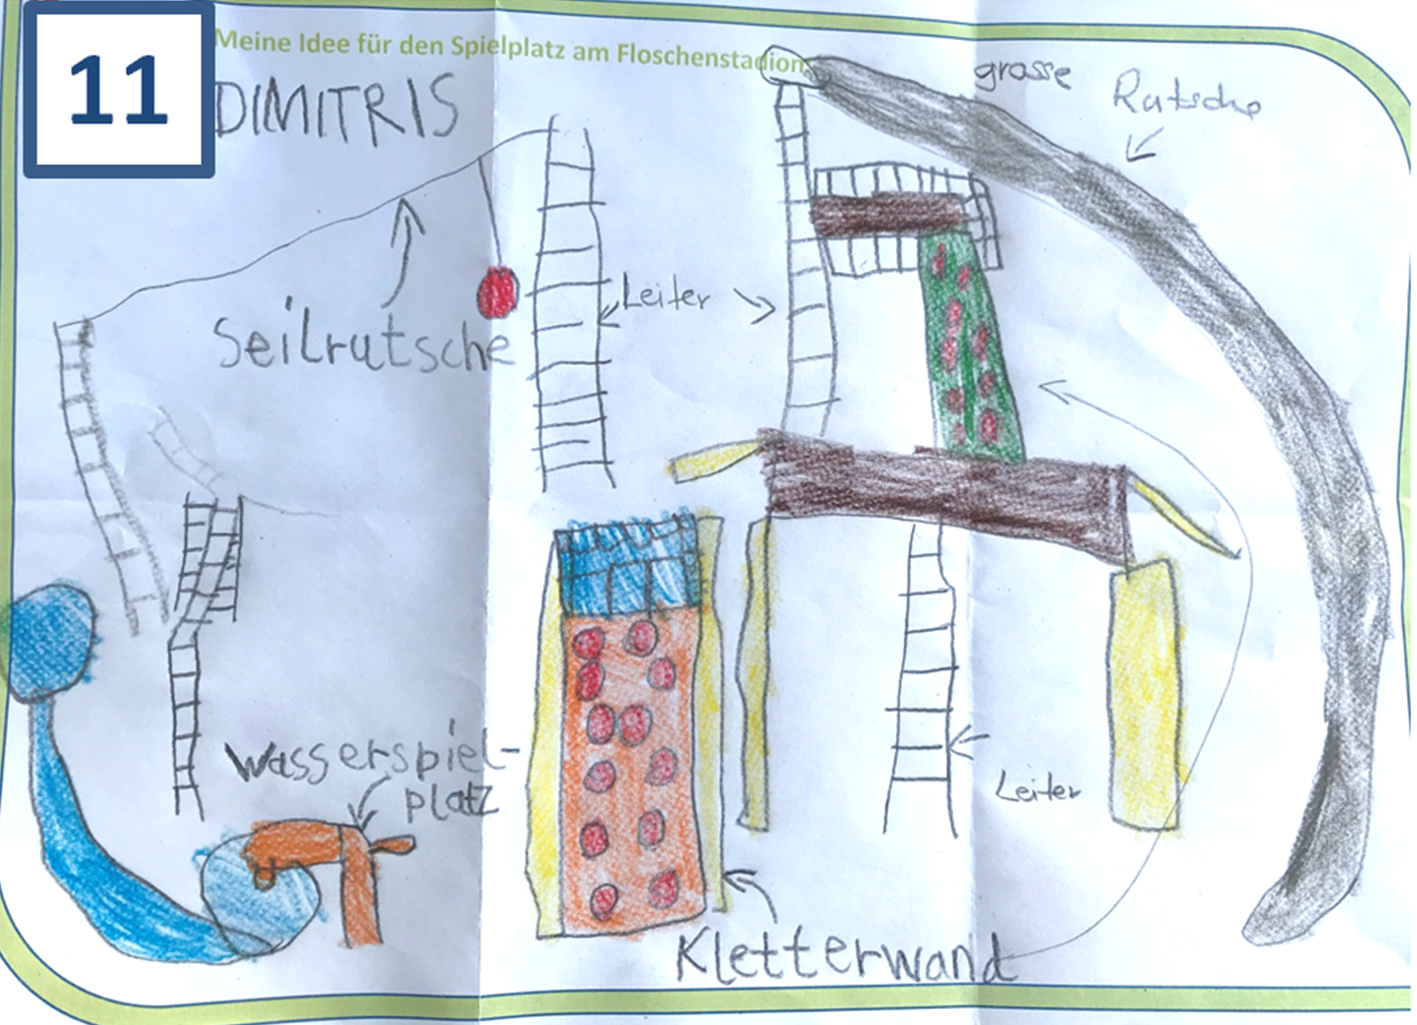 11
Meine Idee für den Spielplatz am Floschenstadion
DIMITRIS
grosse
Rutsche
Seilrutsche
Leiter
Wasserspiel-
platz
Leiter
Kletterwand